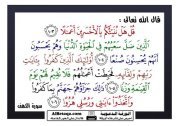 قال الله تعالى :
قُلْ هَلْ نُنَبِّئُكُم بِالْأَخْسَرِينَ أَعْمَالًا ١٠٣
الَّذِينَ ضَلَّ سَعْيُهُمْ فِي الْحَيَاةِ الدُّنْيَا وَهُمْ يَحْسَبُونَ
أَنَّهُمْ يُحْسِنُونَ صُنْعًا ١٠٤ أُولَٰئِكَ الَّذِينَ كَفَرُوا بِآيَاتِ
رَبِّهِمْ وَلِقَائِهِ فَحَبِطَتْ أَعْمَالُهُمْ فَلَا نُقِيمُ لَهُمْ يَوْمَ
الْقِيَامَةِ وَزْنًا ١٠٥ ذَٰلِكَ جَزَاؤُهُمْ جَهَنَّمُ بِمَا كَفَرُوا
وَاتَّخَذُوا آيَاتِي وَرُسُلِي هُزُوًا ١٠٦
سورة الكهف